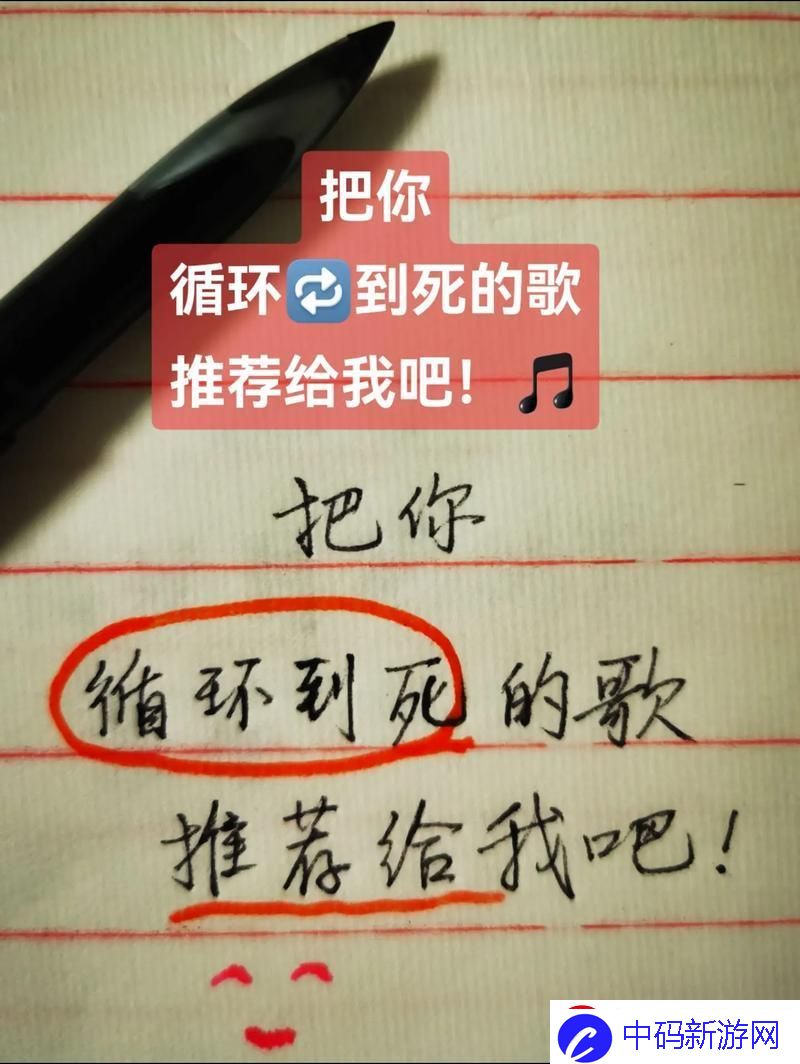 把你
循环🔁到死的歌
推荐给我吧！🎵
把你
循环到死的歌
推荐给我吧！
中码新游网